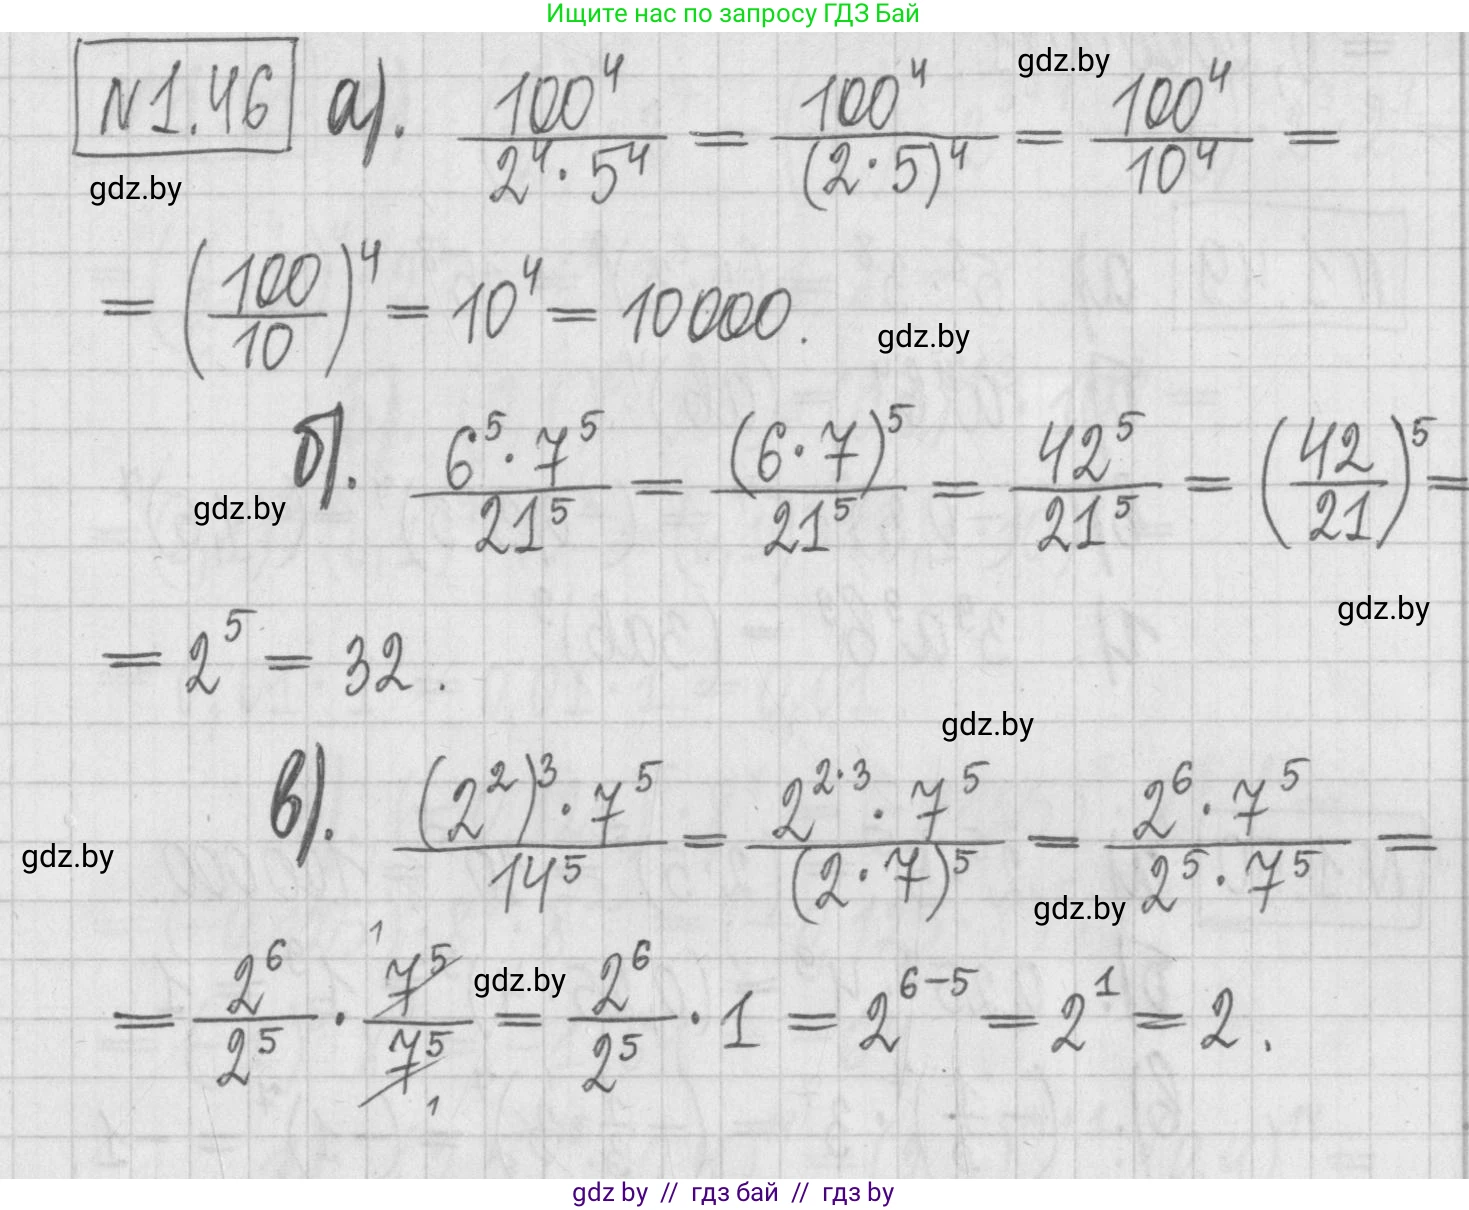 Ищите нас по запросу ГДЗ Бай
№1.46 а). 100^4 / (2^4 · 5^4) = 100^4 / (2 · 5)^4 = 100^4 / 10^4 =
gdz.by
gdz.by
= (100 / 10)^4 = 10^4 = 10000.
gdz.by
б). (6^5 · 7^5) / 21^5 = (6 · 7)^5 / 21^5 = 42^5 / 21^5 = (42 / 21)^5 =
gdz.by
gdz.by
= 2^5 = 32.
gdz.by
в). ((2^2)^3 · 7^5) / 14^5 = (2^(2·3) · 7^5) / (2 · 7)^5 = (2^6 · 7^5) / (2^5 · 7^5) =
gdz.by
gdz.by
= 2^6 / 2^5 · 7^5 1 / 7^5 1 = 2^6 / 2^5 · 1 = 2^(6-5) = 2^1 = 2.
gdz.by
gdz by // гдз бай // гдз by